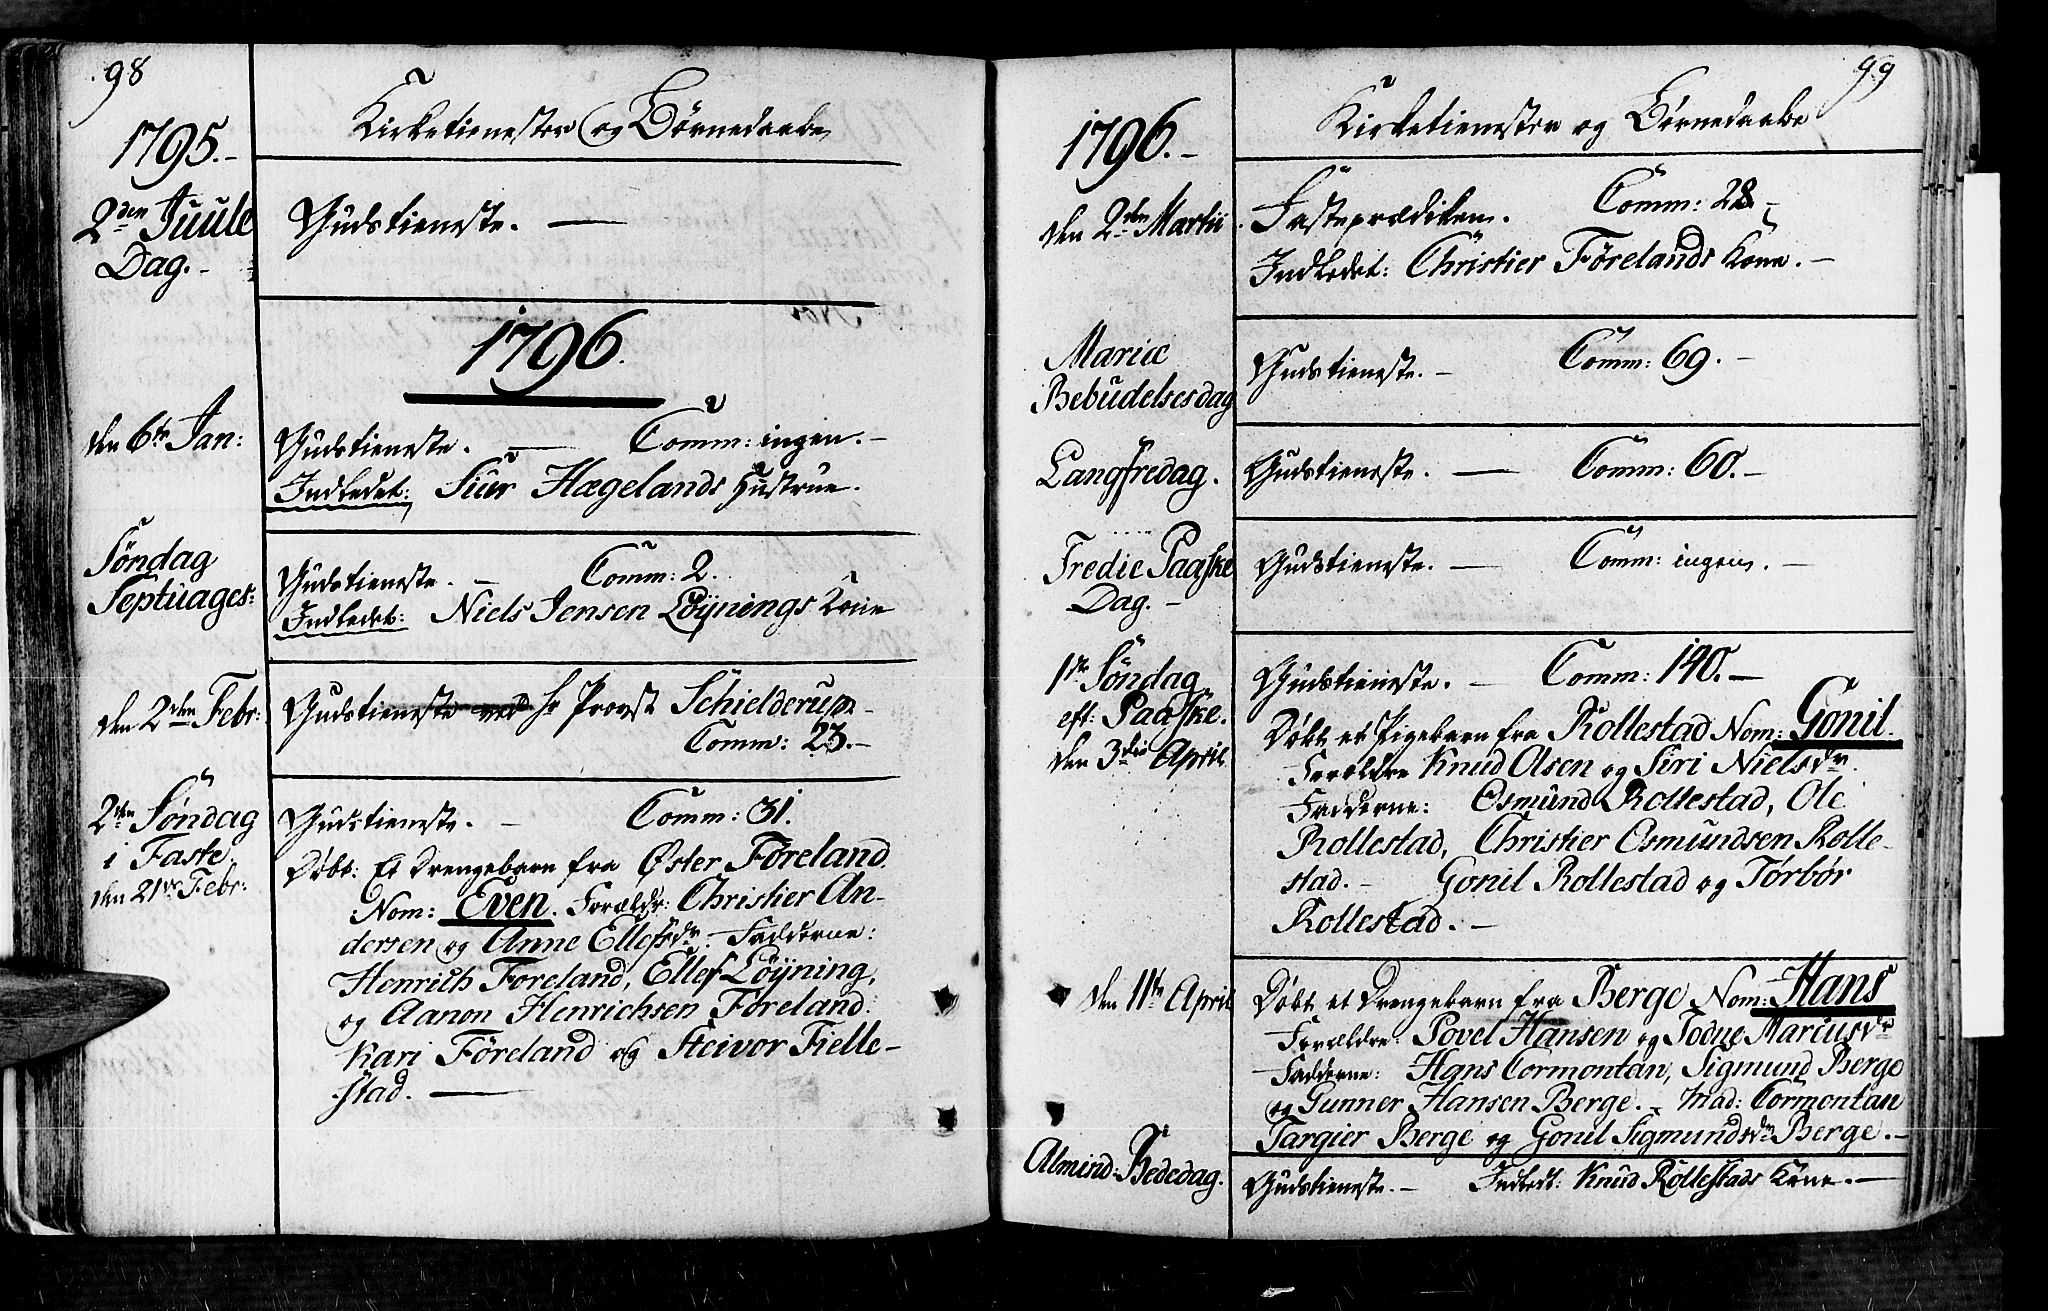 98
Kirketienester og Börnedaabe
1795.-
2den Juule
Dag.-
Gudstieneste. —
1796.
den 6te Jan:
Gudstieneste. — Comm: ingen.-
Indledet: Siur Hægelands Hustrue.
Söndag
Septuages:
Gudstieneste. - Comm: 2.
Indledet: Niels Jensen Löynings Kone
den 2den Febr:
Gudstieneste ved Hr Provst Schielderup.-
Comm: 23.-
2den Söndag
i Faste.
den 21de Febr:
Gudstieneste. - Comm: 31.
Döbt: Et Drengebarn fra Öster Föreland.
Nom: Even. Forældr: Christier An-
dersen og Anne Ellefsdr. Fadderne:
Henrich Foreland, Ellef Löyning,
og Aanon Henrichsen Föreland.
Kari Föreland og Steivor Fielle-
stad. —
99
Kirketienester og Börnedaabe
1796.-
den 2den Martii
Fasteprædiken. Comm: 28.-
Indledet: Christier Förelands Kone.-
Mariæ
Bebudelsesdag
Gudstieneste.- Comm: 69.-
Langfredag.
Gudstieneste. — Comm: 60.-
Tredie Paaske
Dag.-
Gudstieneste. — Comm: ingen.-
1ste Söndag
eft: Paaske.
den 3die April
Gudstieneste. - Comm: 140.-
Döbt et Pigebarn fra Rollestad Nom: Gonil.
Forældre Knud Olsen og Siri Nielsdr.
Fadderne: Osmund Rollestad, Ole
Rollestad, Christier Osmundsen Rolle-
stad.- Gonil Rollestad og Törbör
Rollestad.-
den 11te April
Döbt et Drengebarn fra Berge Nom: Hans
Forældre Povel Hansen og Todne Marcusdr
Fadderne: Hans Cormontan, Sigmund Berge
og Gunner Hansen Berge.- Mad: Cormontan
Targier Berge og Gonil Sigmundsdr Berge.-
Almind: Bededag.
Gudstieneste.- Indledt: Knud Rollestads Kone.-